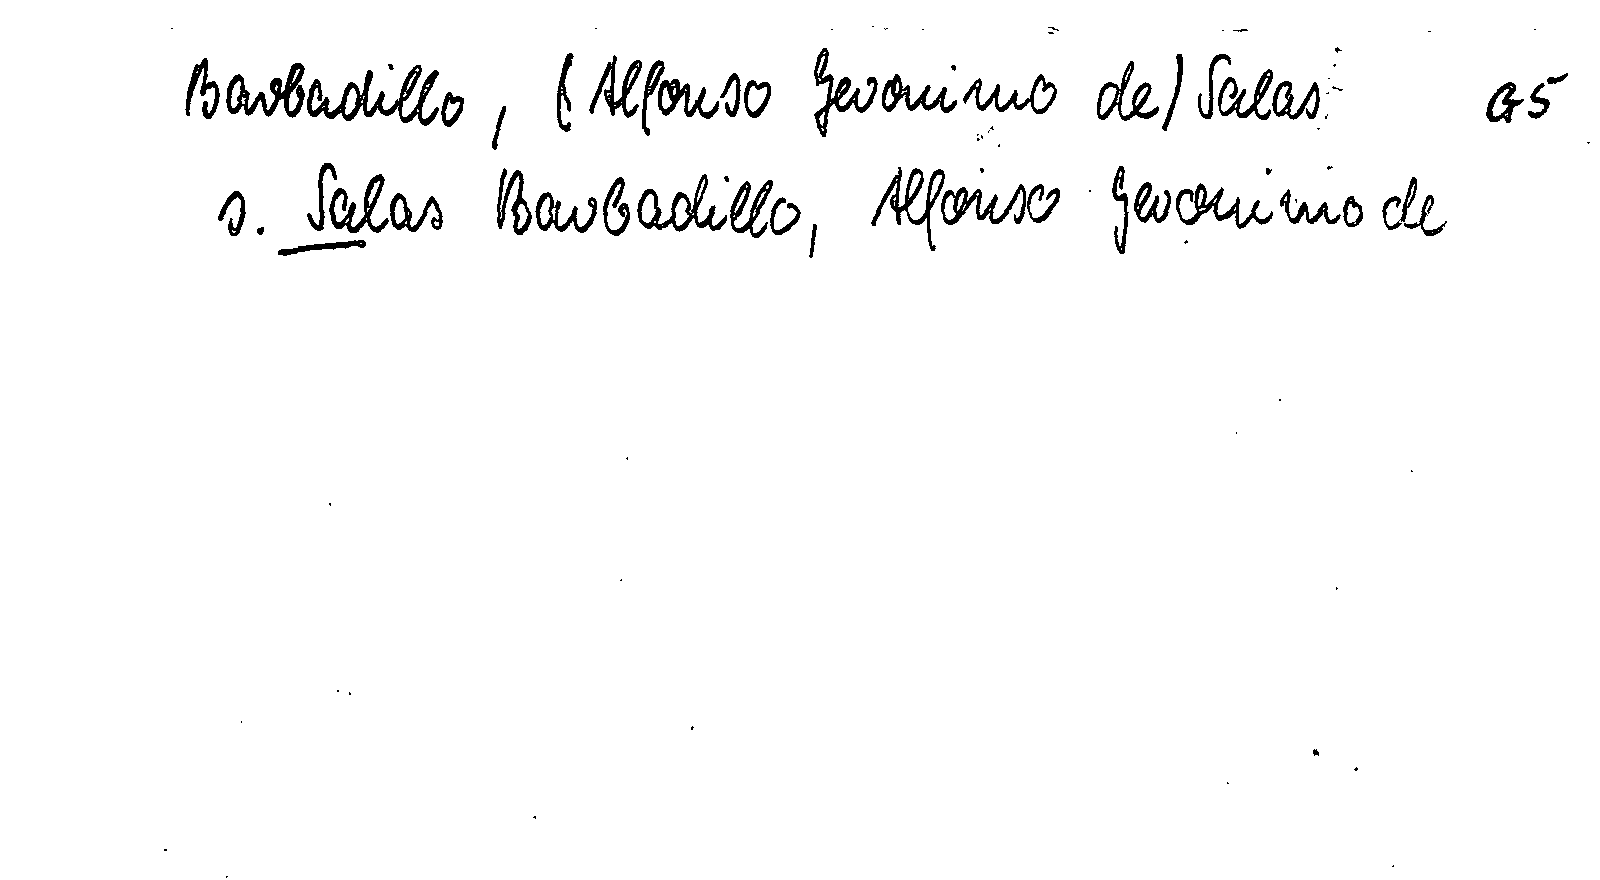 Barbadillo, (Alfonso Geronimo de) Salas G5
s. Salas Barbadillo, Alfonso Geronimo de